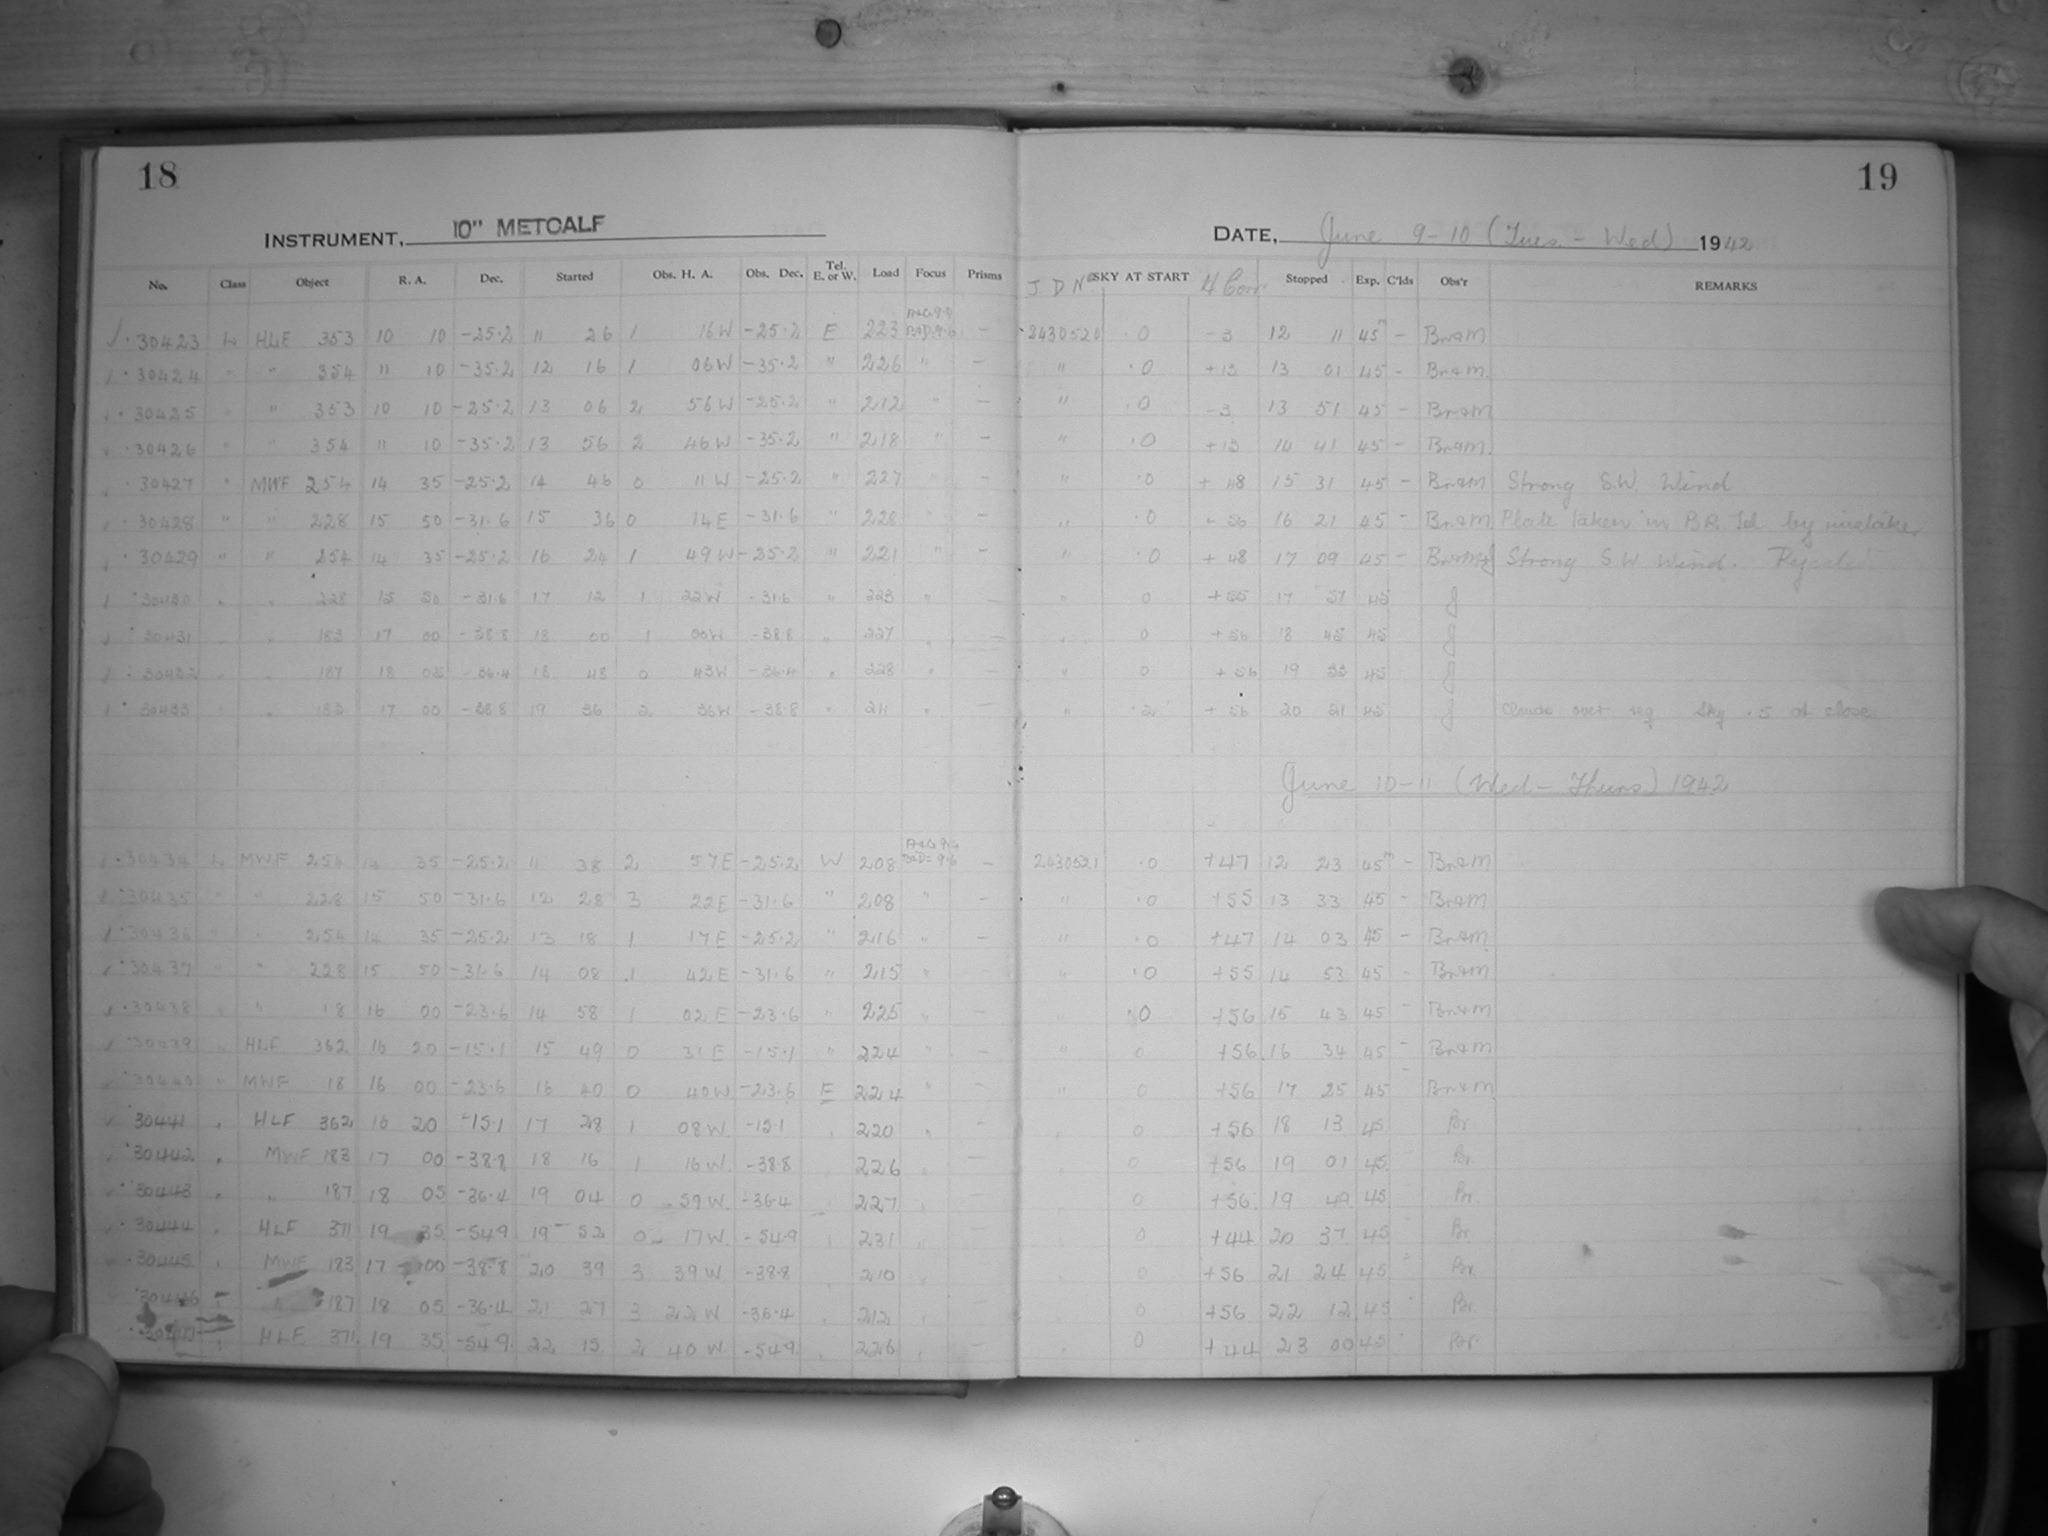 18 19
INSTRUMENT, 10" METCALF DATE, June 9-10 (Tues - Wed) 1942
No. Class Object R. A. Dec. Started Obs. H. A. Obs. Dec. Tel. E. or W. Load Focus Prisms J D No SKY AT START H Corr Stopped Exp. C'lds Obs'r REMARKS
30423 L HLF 353 10 10 -25.2 11 26 1 16W -25.2 E 223 - 2430520 .0 -3 12 11 45m - Br&M
30424 " " 354 11 10 -35.2 12 16 1 06W -35.2 " 226 " - " .0 +13 13 01 45 - Br&M
30425 " " 353 10 10 -25.2 13 06 2 56W -25.2 " 212 " - " .0 -3 13 51 45 - Br&M
30426 " " 354 11 10 -35.2 13 56 2 46W -35.2 " 218 " - " .0 +13 14 41 45 - Br&M
30427 " MWF 254 14 35 -25.2 14 46 0 11W -25.2 " 227 " - " .0 +48 15 31 45 - Br&M Strong S.W. Wind
30428 " " 228 15 50 -31.6 15 36 0 14E -31.6 " 228 " - " .0 16 21 45 - Br&M Plate taken in BR. Id by mistake.
30429 " " 254 14 35 -25.2 16 24 1 49W -25.2 " 221 " - " .0 +48 17 09 45 - Strong S.W. Wind.
30430 " " 228 15 50 -31.6 17 12 1 22W -31.6 " 223 " - " 0 +55 17 57 45 J
30431 " " 183 17 00 -38.8 18 00 1 00W -38.8 " 227 " - " 0 +56 18 45 45 J
30432 " " 187 18 05 -36.4 18 48 0 43W -36.4 " 228 " - " 0 +56 19 33 45 J
30433 " " 183 17 00 -38.8 19 36 2 36W -38.8 " 211 " - " .2 +56 20 21 45 J Clouds over reg. Sky .5 at close
June 10-11 (Wed - Thurs) 1942
30434 L MWF 254 14 35 -25.2 11 38 2 57E -25.2 W 208 - 2430521 .0 +47 12 23 45m - Br&M
30435 " " 228 15 50 -31.6 12 28 3 22E -31.6 " 208 " - " .0 +55 13 33 45 - Br&M
30436 " " 254 14 35 -25.2 13 18 1 17E -25.2 " 216 " - " .0 +47 14 03 45 - Br&M
30437 " " 228 15 50 -31.6 14 08 1 42E -31.6 " 215 " - " .0 +55 14 53 45 - Br&M
30438 " " 18 16 00 -23.6 14 58 1 02E -23.6 " 225 " - " .0 +56 15 43 45 - Br&M
30439 " HLF 362 16 20 -15.1 15 49 0 31E -15.1 " 224 " - " 0 +56 16 34 45 - Br&M
30440 " MWF 18 16 00 -23.6 16 40 0 40W -23.6 E 224 " - " 0 +56 17 25 45 - Br&M
30441 " HLF 362 16 20 -15.1 17 28 1 08W -15.1 " 220 " - " 0 +56 18 13 45 Br.
30442 " MWF 183 17 00 -38.8 18 16 1 16W -38.8 " 226 " - " 0 +56 19 01 45 Br.
30443 " " 187 18 05 -36.4 19 04 0 59W -36.4 " 227 " - " 0 +56 19 49 45 - Br.
30444 " HLF 371 19 35 -54.9 19 52 0 17W -54.9 " 231 " - " 0 +44 20 37 45 - Br.
30445 " MWF 183 17 00 -38.8 20 39 3 39W -38.8 " 210 " - " 0 +56 21 24 45 - Br.
30446 " " 187 18 05 -36.4 21 27 3 22W -36.4 " 212 " - " 0 +56 22 12 45 - Br.
30447 " HLF 371 19 35 -54.9 22 15 2 40W -54.9 " 226 " - " 0 +44 23 00 45 - Br.